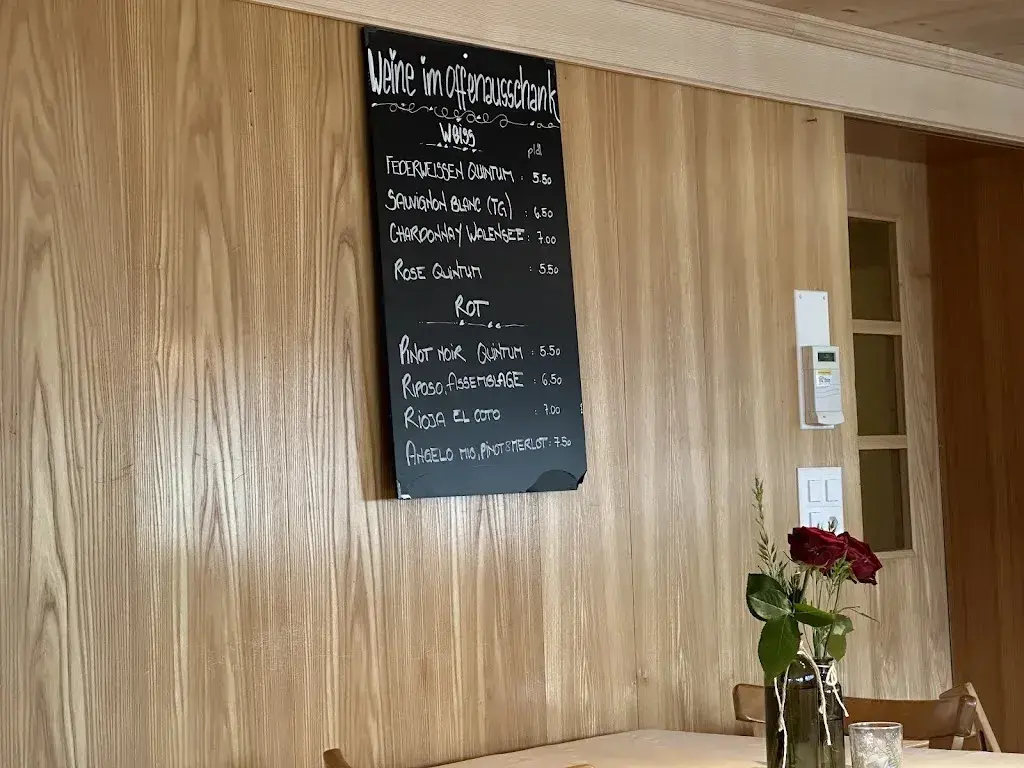 Weine im offenausschank
Weiss
p/dl
FEDERWEISSEN QUINTUM : 5.50
SAUVIGNON BLANC (TG) : 6.50
CHARDONNAY WALENSEE : 7.00
ROSE QUINTUM : 5.50
ROT
PINOT NOIR QUINTUM : 5.50
RIPOSO, ASSEMBLAGE : 6.50
RIOJA EL COTO : 7.00
ANGELO MIO, PINOT&MERLOT : 7.50